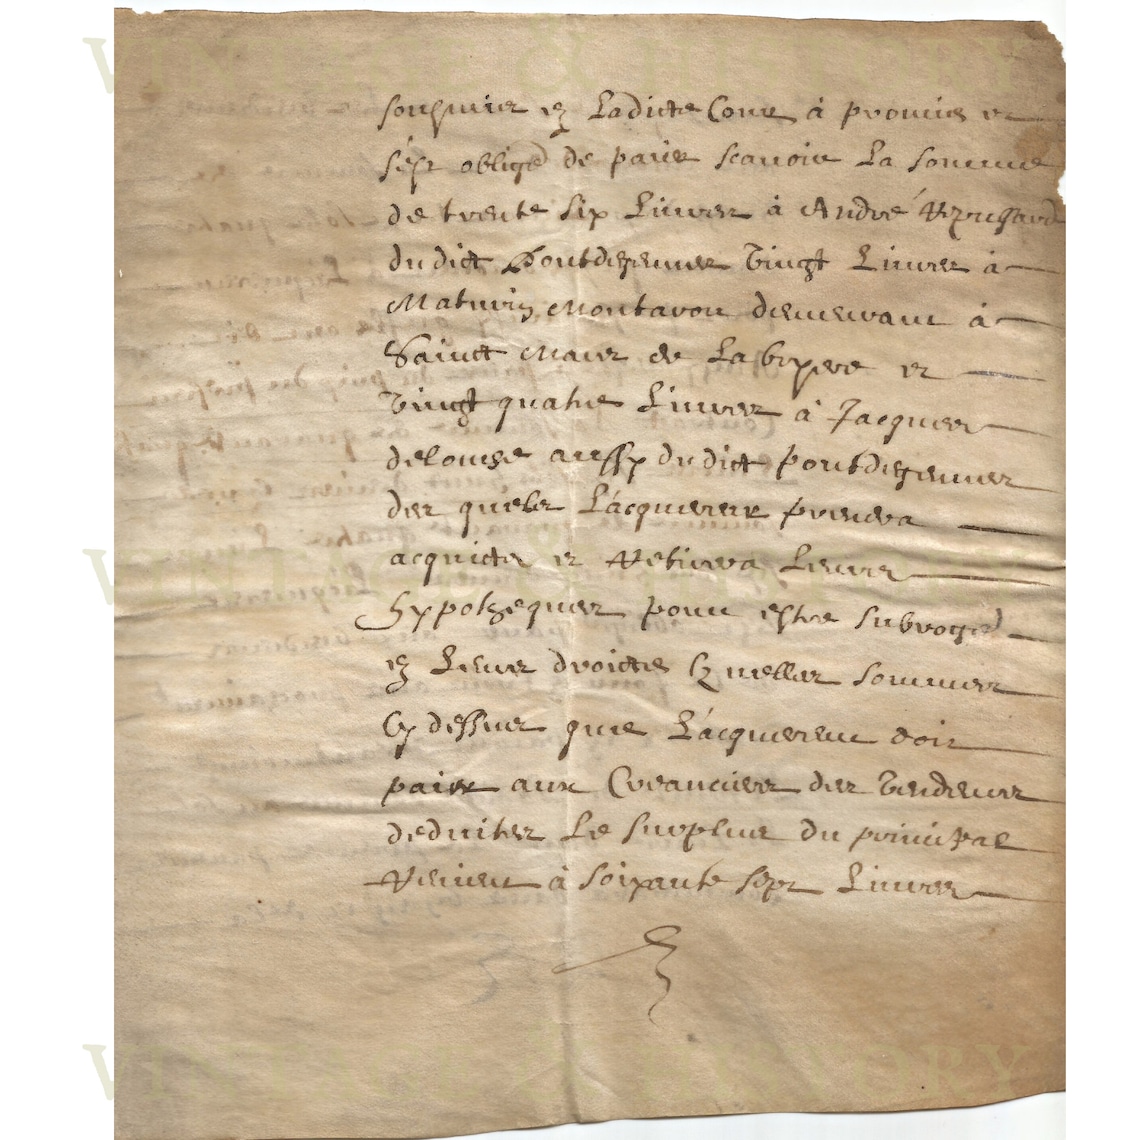 VINTAGE & HISTORY
soubzmis en Ladicte Cour à promis et
s'est obligé de paier scavoir La somme
de trente six Livres à André
dudict Pontdegennes Vingt Livres à
Maturin Montarou demeurant à
Sainct Maur de La et
Vingt quatre Livres à Jacques
delouse aussy dudict pontdegennes
des quelz L'acquereur prendra
acquictz et Retirera Leurs
hypothegues pour estre subrogé
en Leurs droictz sommes
Cy dessus que L'acquereur doit
paier aux Creanciers des Vendeurs
deduites Le surplus du principal
Revient à soixante sept Livres
VINTAGE & HISTORY
VINTAGE & HISTORY